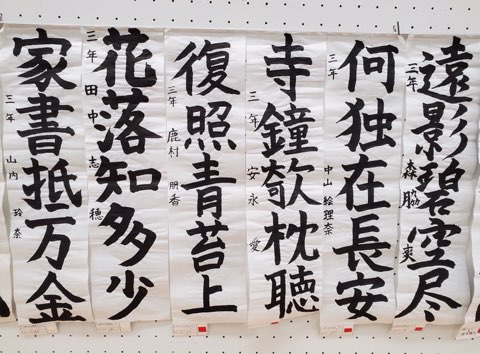 遠影碧空尽
三年 森脇 爽
何独在長安
三年 中山 絵理奈
寺鐘欹枕聴
三年 安永 愛
復照青苔上
三年 鹿村 朋香
花落知多少
三年 田中 志穂
家書抵万金
三年 山内 玲奈